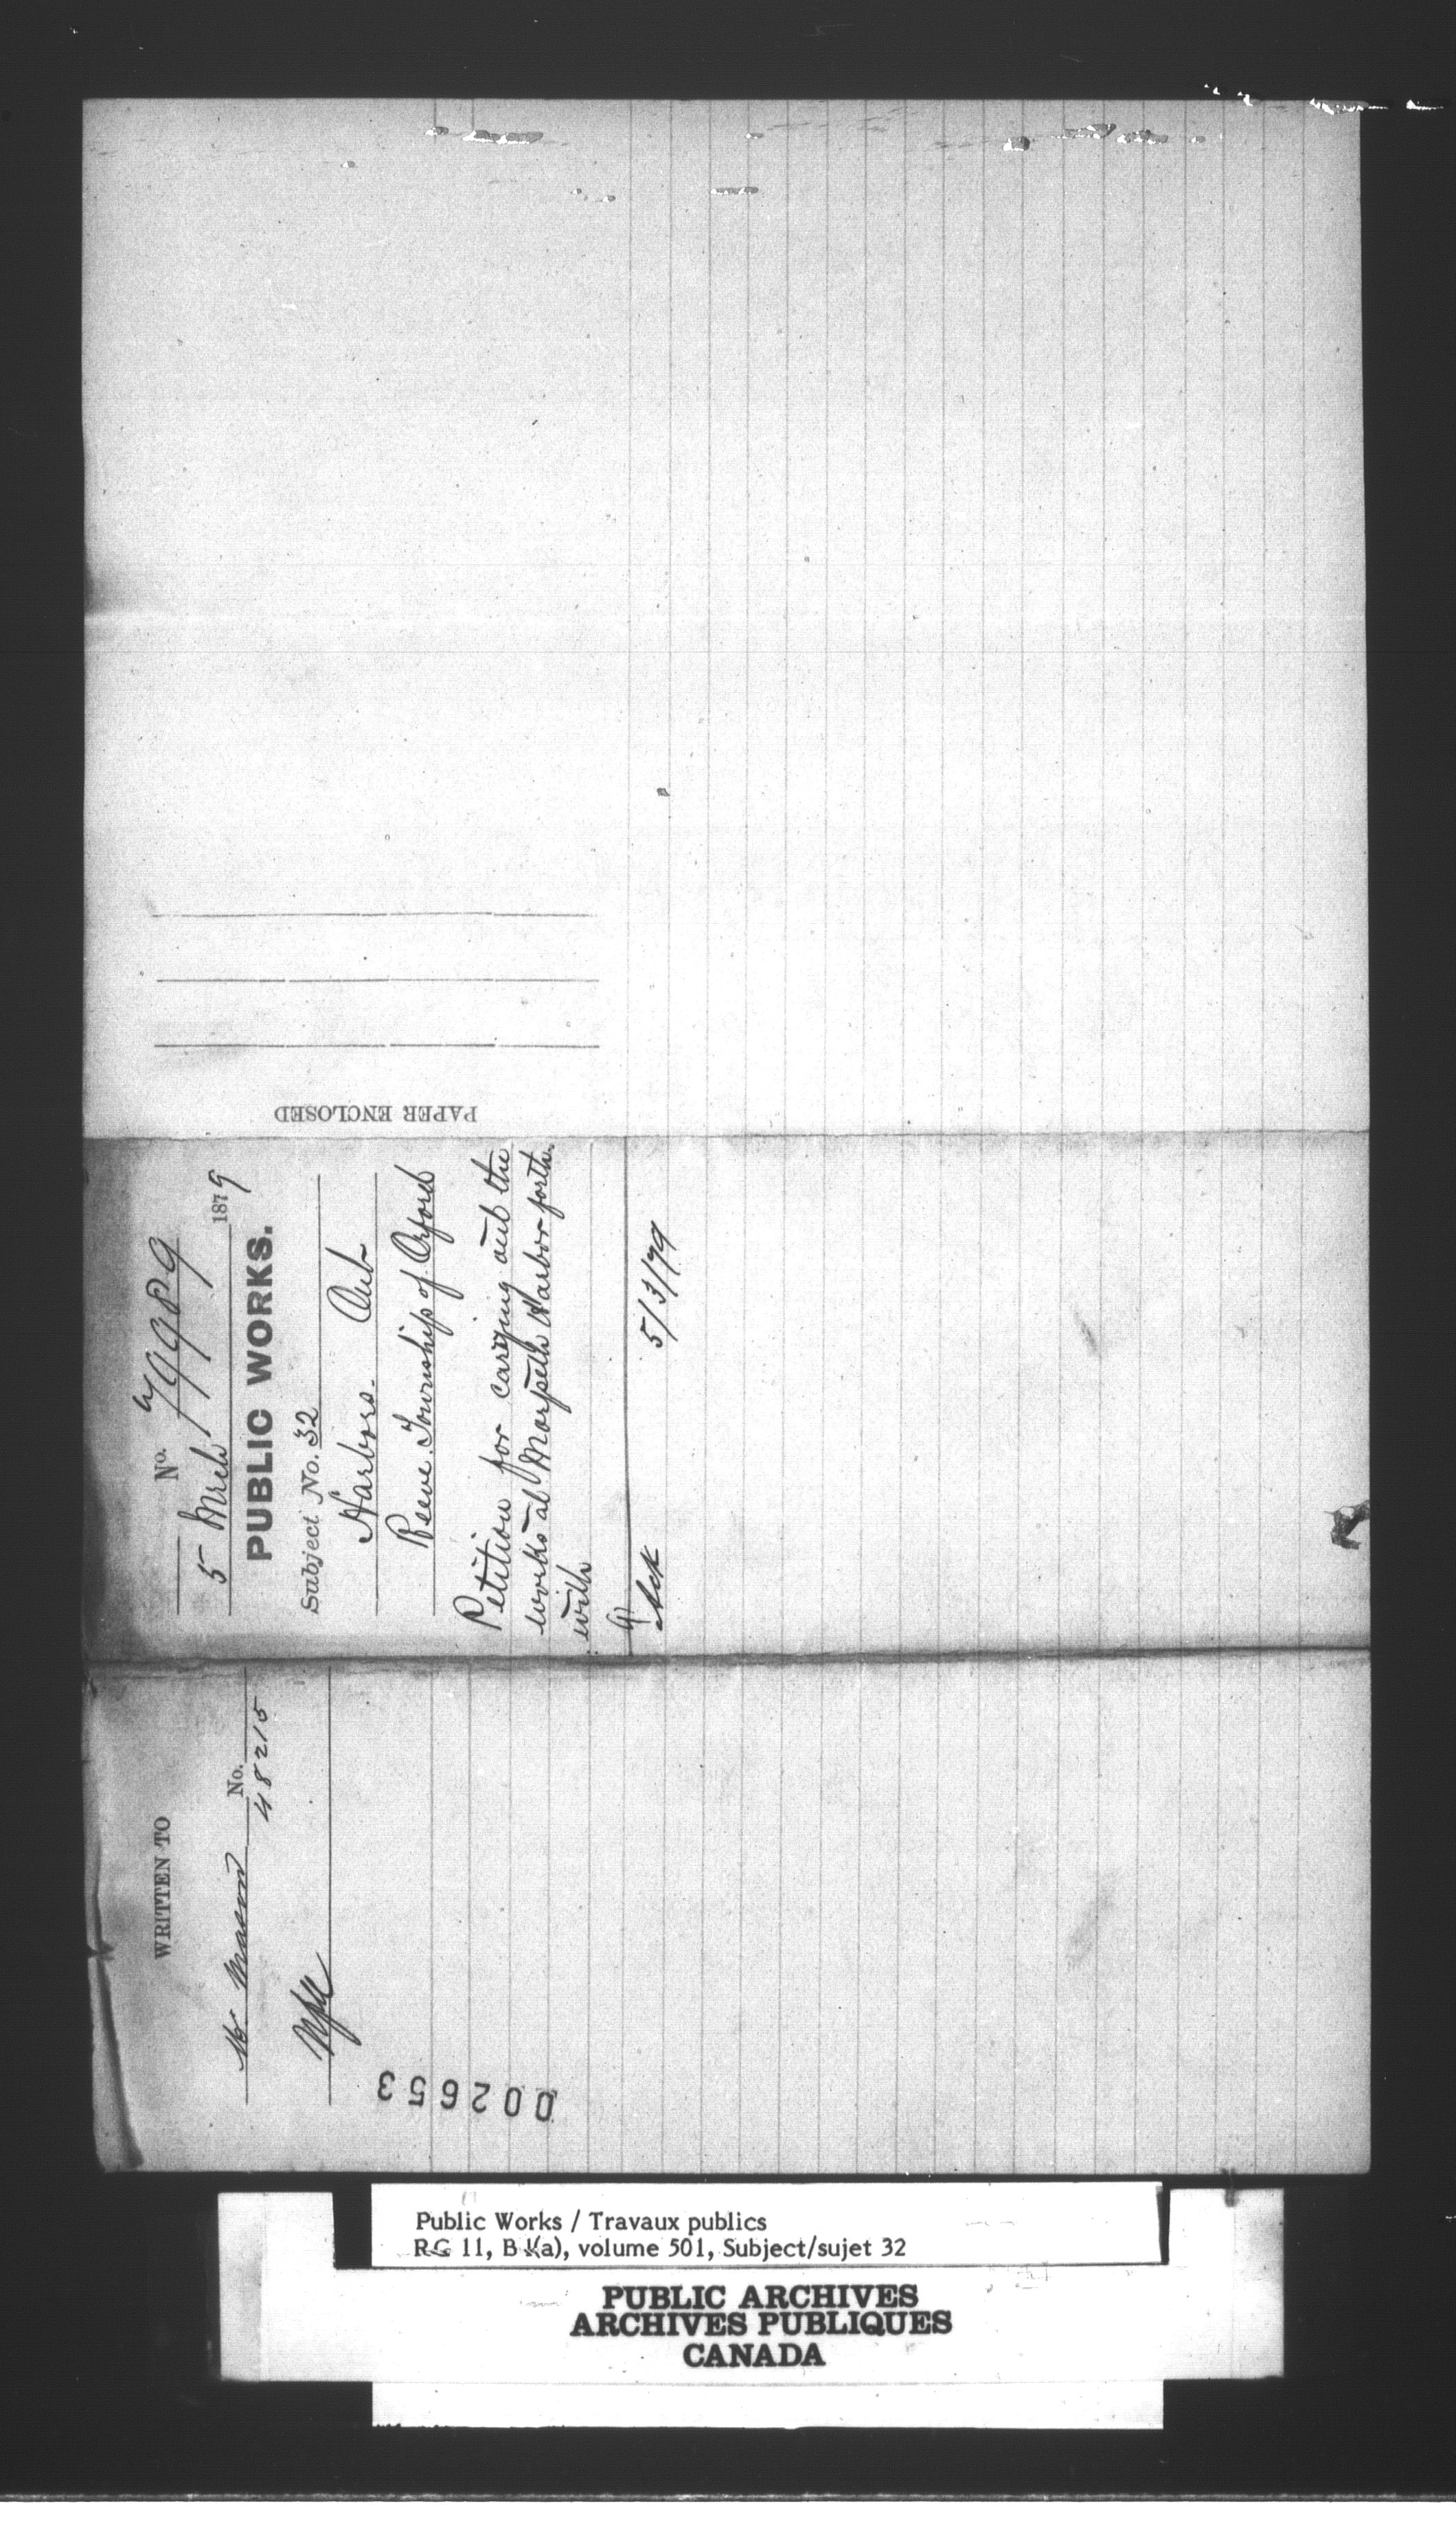 PAPER ENCLOSED
No. 79989
5 Mch 1879
PUBLIC WORKS.
Subject No. 32
Harbors. Ont
Reeve Township of Orford
Petition for carrying out the
works at Morpeth Harbor forth
with
Ack 5/3/79
WRITTEN TO
Mr Mason No.
48215
002653
Public Works / Travaux publics
RG 11, B 1(a), volume 501, Subject/sujet 32
PUBLIC ARCHIVES
ARCHIVES PUBLIQUES
CANADA